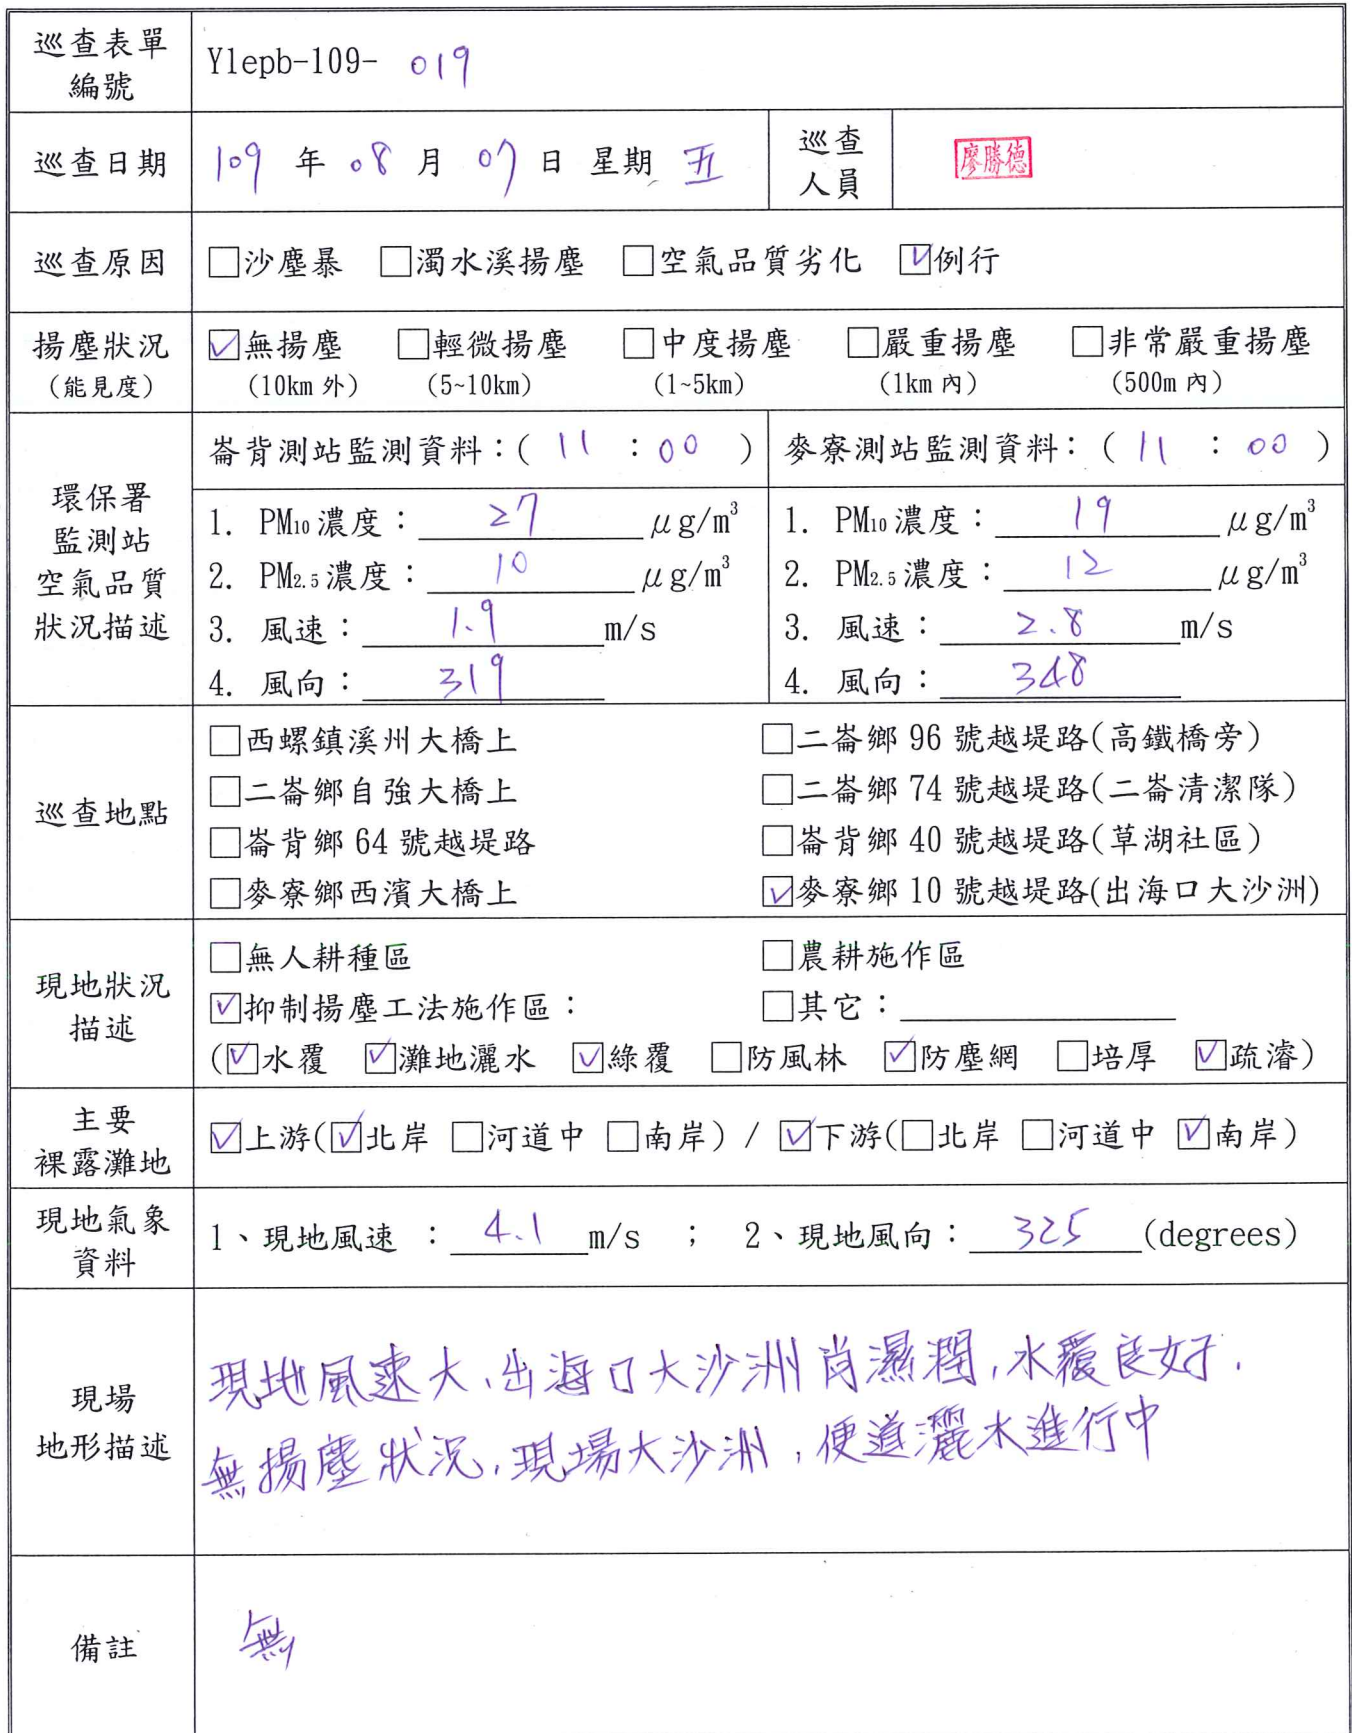 巡查表單
編號
Ylepb-109- 019
巡查日期
109 年 08 月 07 日 星期 五
巡查
人員
廖勝德
巡查原因
□沙塵暴 □濁水溪揚塵 □空氣品質劣化 ☑例行
揚塵狀況
(能見度)
☑無揚塵 □輕微揚塵 □中度揚塵 □嚴重揚塵 □非常嚴重揚塵
(10km 外) (5~10km) (1~5km) (1km 內) (500m 內)
環保署
監測站
空氣品質
狀況描述
崙背測站監測資料：( 11 : 00 )
1. PM10 濃度： 27 μg/m³
2. PM2.5 濃度： 10 μg/m³
3. 風速： 1.9 m/s
4. 風向： 319
麥寮測站監測資料： ( 11 : 00 )
1. PM10 濃度： 19 μg/m³
2. PM2.5 濃度： 12 μg/m³
3. 風速： 2.8 m/s
4. 風向： 348
巡查地點
□西螺鎮溪州大橋上 □二崙鄉 96 號越堤路(高鐵橋旁)
□二崙鄉自強大橋上 □二崙鄉 74 號越堤路(二崙清潔隊)
□崙背鄉 64 號越堤路 □崙背鄉 40 號越堤路(草湖社區)
□麥寮鄉西濱大橋上 ☑麥寮鄉 10 號越堤路(出海口大沙洲)
現地狀況
描述
□無人耕種區 □農耕施作區
☑抑制揚塵工法施作區： □其它：
(☑水覆 ☑灘地灑水 ☑綠覆 □防風林 ☑防塵網 □培厚 ☑疏濬)
主要
裸露灘地
☑上游(☑北岸 □河道中 □南岸) / ☑下游(□北岸 □河道中 ☑南岸)
現地氣象
資料
1、現地風速 ： 4.1 m/s ； 2、現地風向： 325 (degrees)
現場
地形描述
現地風速大，出海口大沙洲尚濕潤，水覆良好，
無揚塵狀況，現場大沙洲，便道灑水進行中
備註
無